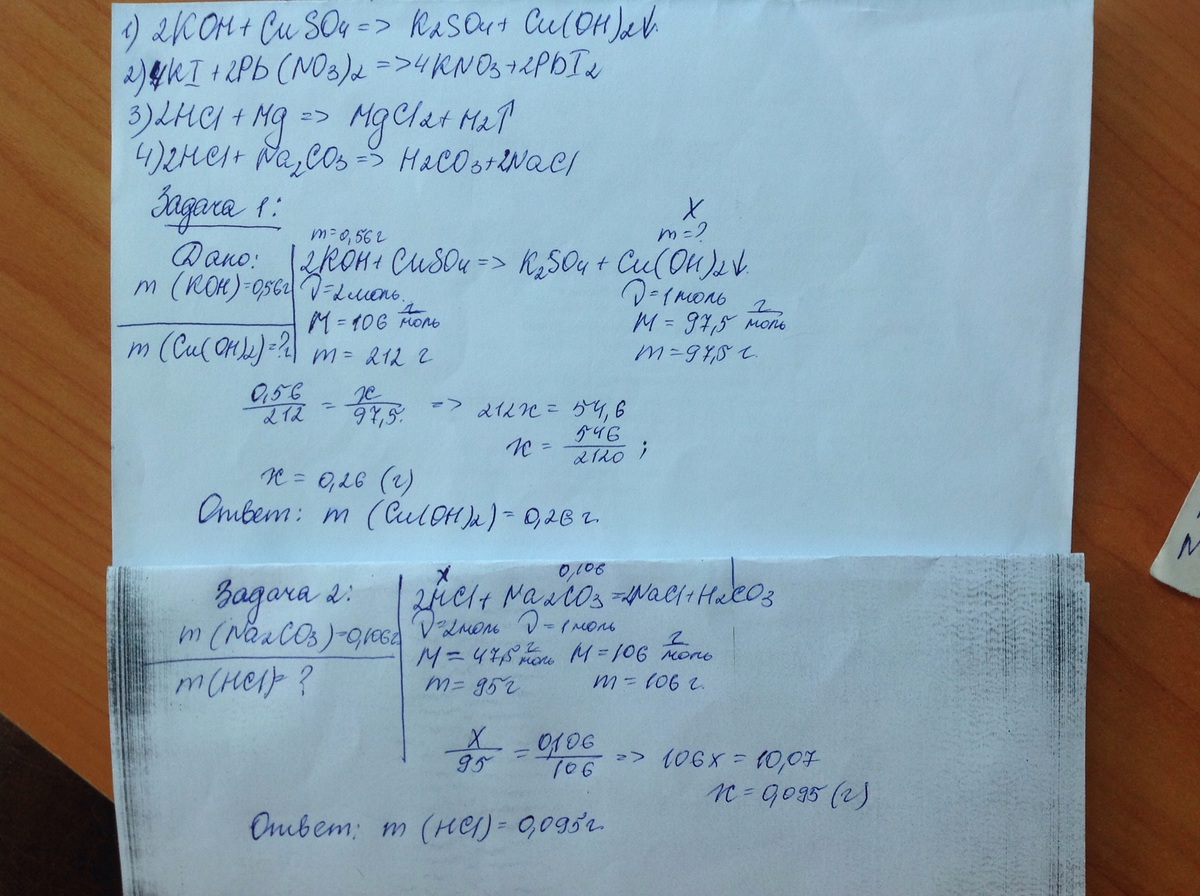 1) 2KOH + CuSO4 => K2SO4 + Cu(OH)2↓.
2) 4KI + 2Pb(NO3)2 => 4KNO3 + 2PbI2
3) 2HCl + Mg => MgCl2 + H2↑
4) 2HCl + Na2CO3 => H2CO3 + 2NaCl
Задача 1:
Дано:
m (KOH) = 0,56г
m (Cu(OH)2) = ?г
m = 0,56г X
m = ?
2KOH + CuSO4 => K2SO4 + Cu(OH)2↓.
ν = 2 моль. ν = 1 моль
M = 106 г/моль M = 97,5 г/моль
m = 212 г m = 97,5 г.
0,56/212 = x/97,5. => 212x = 54,6
x = 546/2120 ;
x = 0,26 (г)
Ответ: m (Cu(OH)2) = 0,26 г.
Задача 2:
m (Na2CO3) = 0,106г
m (HCl) = ?
X 0,106
2HCl + Na2CO3 = 2NaCl + H2CO3
ν = 2моль ν = 1 моль
M = 47,5 г/моль M = 106 г/моль
m = 95 г m = 106 г.
X/95 = 0,106/106 => 106x = 10,07
x = 0,095 (г)
Ответ: m (HCl) = 0,095г.